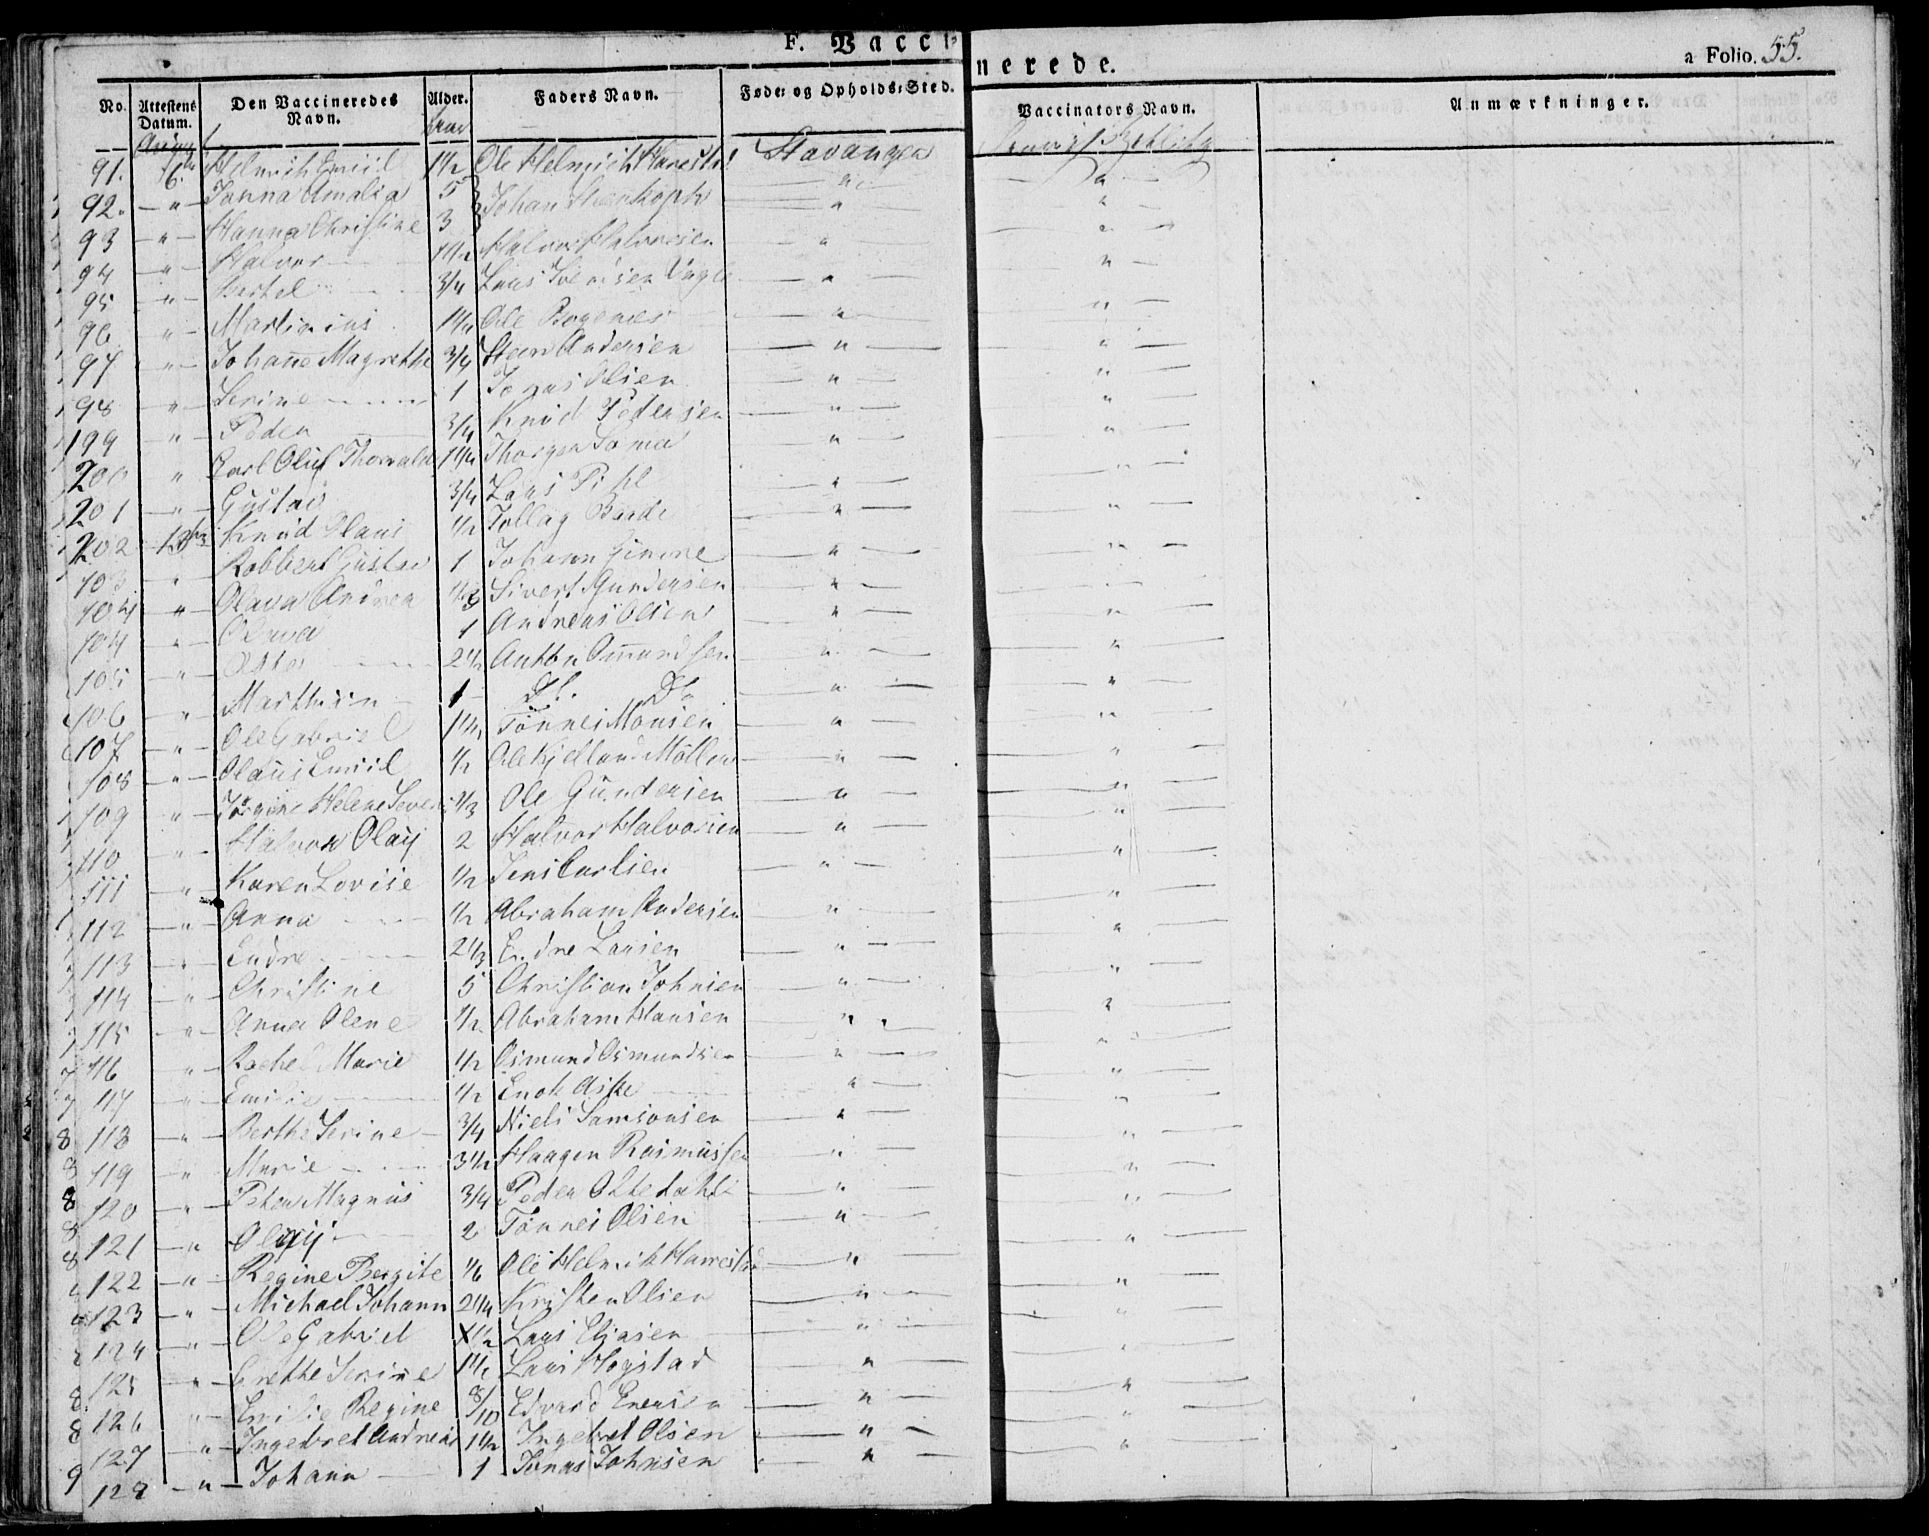 F. Vaccinerede.
a Folio. 55.
No. Attestens Datum. Den Vaccineredes Navn. Alder. Faders Navn. Føde- og Opholds-Sted. Vaccinators Navn. Anmærkninger.
91. 6te Helmich Emiil 1 1/2 Ole Helmich Harestad Stavanger
92. " Janna Amalia 5 Johan Steenkoph "
93 " Hanna Christine 3 "
94 " Halvor 1 1/2 Halvor Halvorsen "
95 " Bertel 3/4 Laus Svendsen Vagle "
96 " Martinius 1 1/4 Ole Bogenes "
97 " Johane Magrethe 3/4 Steen Andersen "
98 " Serine 1 Jonas Olsen "
199 " Peder 3/4 Knud Pedersen "
200 " Carl Oluf Thorvald 1 1/4 Thorger Soma "
201 " Gustav 3/4 Laus Pihl "
202 13de Knud Olaus 1/2 Tollag Barde "
103 " Robbert Gustav 1 Johann Gimre "
104 " Olava Andrea 1/3 Sivert Gundersen "
104 " Olava 1 Andreas Olsen "
105 " 2 1/2 Anton Omundsen "
106 " Marthin 1 Do. Do. "
107 " Ole Gabriel 1 1/2 Tönnes Monsen "
108 " Olaus Emiil 1/2 Ole Kjelland Möller "
109 " Jörgine Helene Severi 1/3 Ole Gundersen "
110 " Halvor Olaij 2 Halvor Halvorsen "
111 " Karen Lovise 1/2 Jens Carlsen "
112 " Anna 1/2 Abraham Andersen "
113 " Endre 2 1/3 Endre Larsen "
114 " Christine 5 Christian Johnsen "
115 " Anna Olene 1/2 Abraham Hansen "
116 " Rachel Marie 1/2 Osmund Osmundsen "
117 " Emilie 1/2 Enok Aske "
118 " Berthe Serine 3/4 Niels Samsonsen "
119 " Marie 3 1/2 Haagen Rasmussen "
120 " Peter Magnus 3/4 Peder Oltedahl "
121 " Olaij 2 Tönnes Olsen "
122 " Regine Bergite 1/6 Ole Helmik Harrestad "
123 " Michael Johann 2 1/4 Kristen Olsen "
124 " Ole Gabriel 1 1/2 Laus Eliasen "
125 " Grethe Serine 1 1/2 Laus Hogstad "
126 " Emilie Regine 8/10 Edvard Enersen "
127 " Ingebret Andreas 1 1/2 Ingebret Olsen "
128 " Johann 1 Jonas Johnsen "